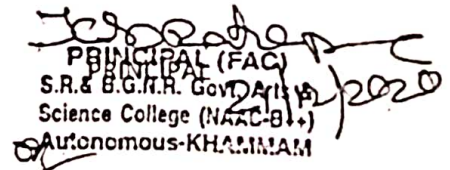 PRINCIPAL (FAC)
PRINCIPAL
S.R.& B.G.N.R. Govt. Arts &
Science College (NAAC-B++)
Autonomous-KHAMMAM
2020